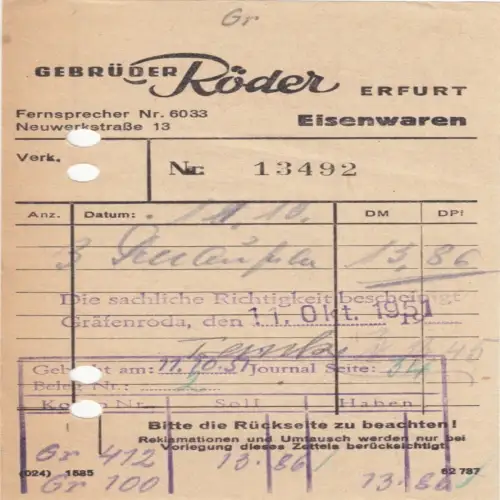 Gr
GEBRÜDER Röder ERFURT
Fernsprecher Nr. 6033
Neuwerkstraße 13
Eisenwaren
Verk.
Nr. 13492
Anz. Datum: 11.10. DM DPf
3 13,86
Die sachliche Richtigkeit bescheinigt
Gräfenroda, den 11. Okt. 1951
Gebucht am: 11.10.51 Journal Seite: 34
Beleg Nr.: 2
Konto Nr. Soll Haben
Bitte die Rückseite zu beachten!
Reklamationen und Umtausch werden nur bei
Vorlegung dieses Zettels berücksichtigt
Gr 412 13.86
(024) 1585 52 787
Gr 100 13.86